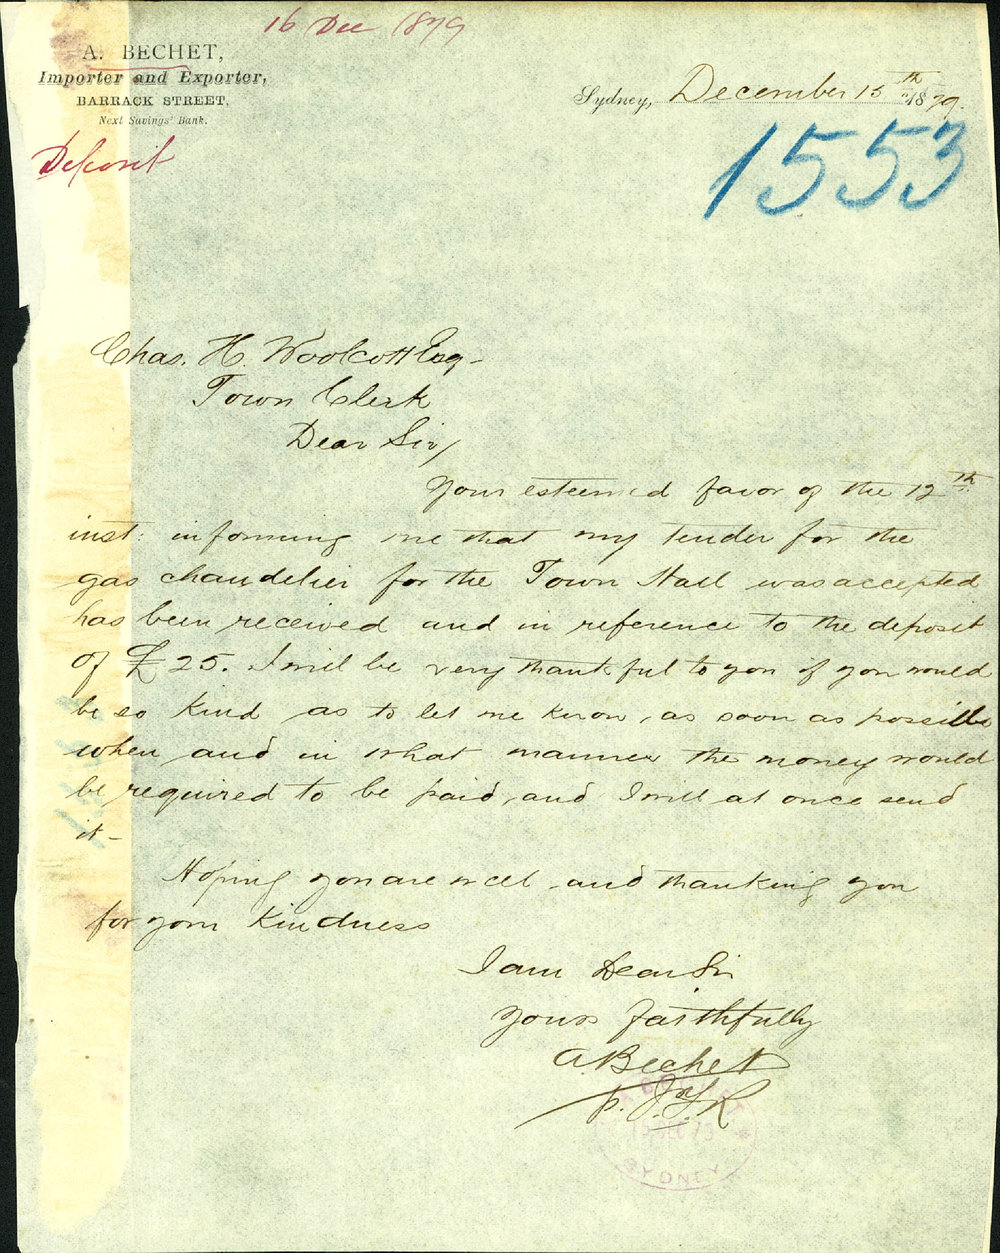 16 Dec 1879
A. BECHET,
Importer and Exporter,
BARRACK STREET,
Next Savings' Bank.
Sydney, December 15th 1879.
Deposit
1553
Chas. H. Woolcott Esq
Town Clerk
Dear Sir,
Your esteemed favor of the 12th
inst: informing me that my tender for the
gas chandelier for the Town Hall was accepted
has been received and in reference to the deposit
of £25. I will be very thankful to you if you would
be so kind as to let me know, as soon as possible
when and in what manner the money would
be required to be paid, and I will at once send
it-
Hoping you are well and thanking you
for your kindness
I am Dear Sir
Yours faithfully
A Bechet
p. J.Y.R
SYDNEY